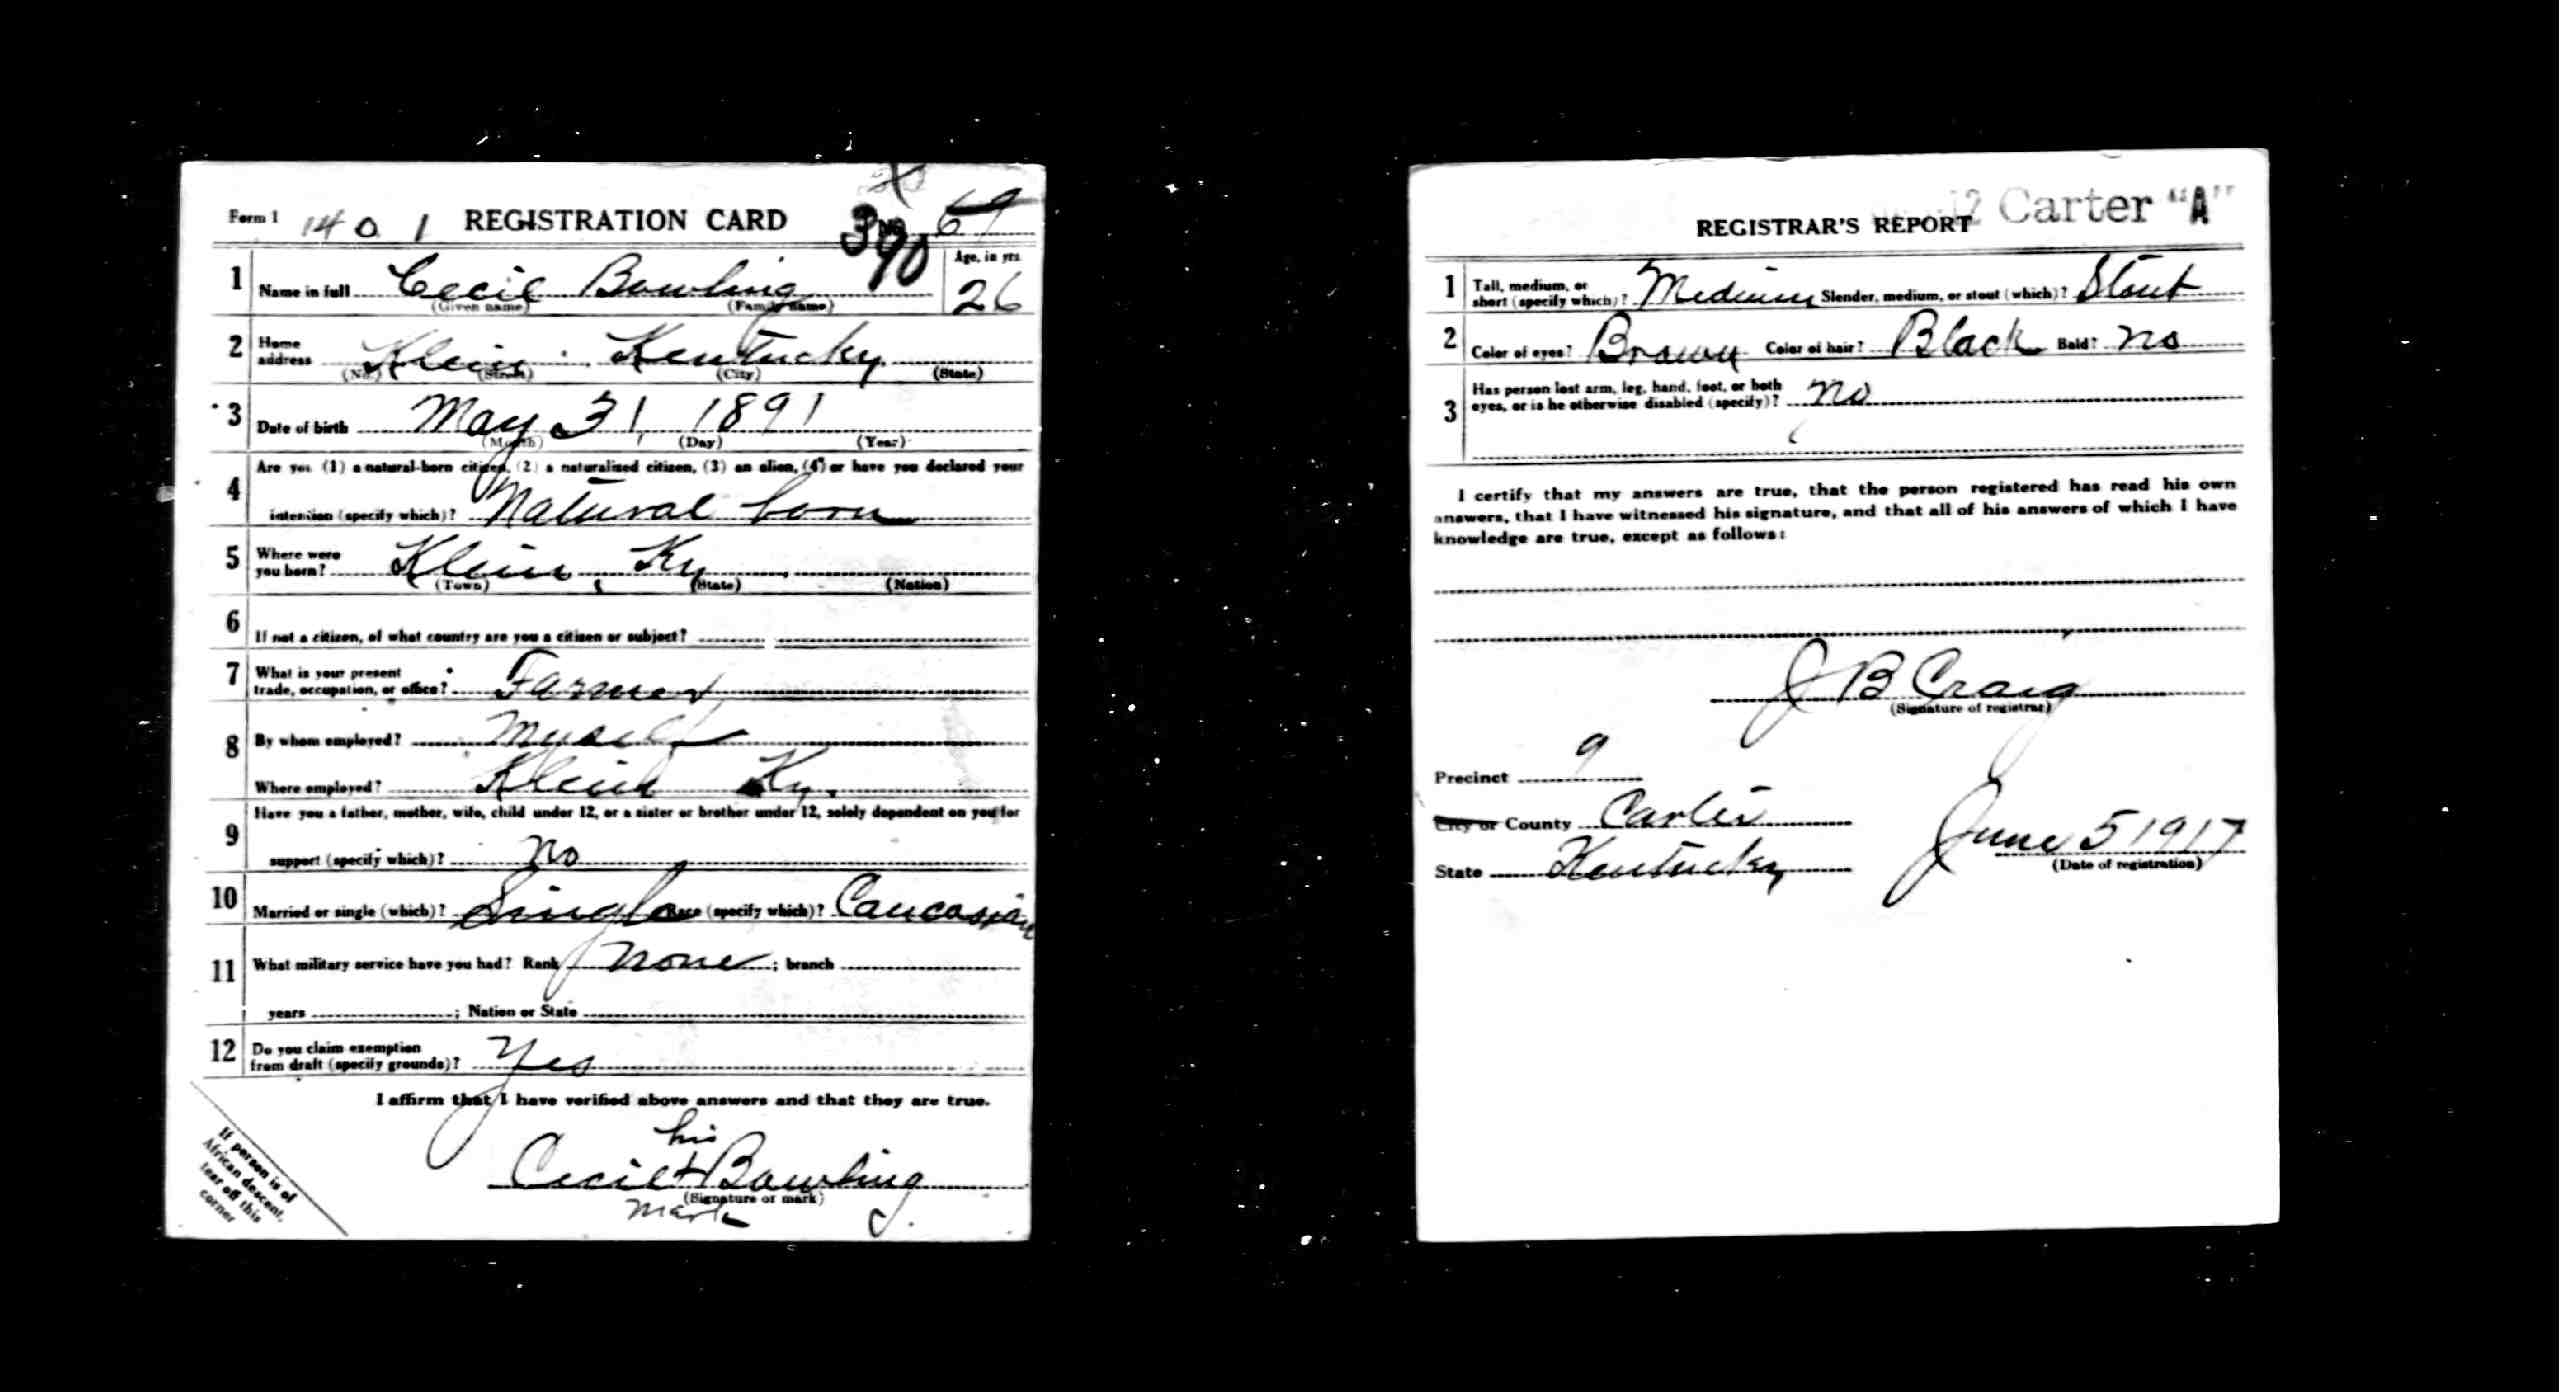 Form 1 1401 REGISTRATION CARD No. 67
390
1 Name in full Cecil Bowling Age, in yrs. 26
(Given name) (Family name)
2 Home address Klein Kentucky
(No.) (Street) (City) (State)
3 Date of birth May 31 1891
(Month) (Day) (Year)
4 Are you (1) a natural-born citizen, (2) a naturalized citizen, (3) an alien, (4) or have you declared your
intention (specify which)? Natural born
5 Where were you born? Klein, Ky
(Town) (State) (Nation)
6 If not a citizen, of what country are you a citizen or subject?
7 What is your present trade, occupation, or office? Farmer
8 By whom employed? Myself
Where employed? Klein Ky.
9 Have you a father, mother, wife, child under 12, or a sister or brother under 12, solely dependent on you for
support (specify which)? No
10 Married or single (which)? Single Race (specify which)? Caucasian
11 What military service have you had? Rank None; branch
years ; Nation or State
12 Do you claim exemption from draft (specify grounds)? Yes
I affirm that I have verified above answers and that they are true.
his
Cecil + Bowling
(Signature or mark)
mark
If person is of
African descent,
tear off this
corner
12 Carter "A"
REGISTRAR'S REPORT
1 Tall, medium, or short (specify which)? Medium Slender, medium, or stout (which)? Stout
2 Color of eyes? Brown Color of hair? Black Bald? No
3 Has person lost arm, leg, hand, foot, or both
eyes, or is he otherwise disabled (specify)? No
I certify that my answers are true, that the person registered has read his own
answers, that I have witnessed his signature, and that all of his answers of which I have
knowledge are true, except as follows:
J B Craig
(Signature of registrar)
Precinct 9
City or County Carter
State Kentucky
June 5 1917
(Date of registration)